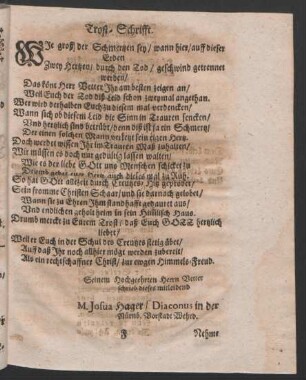 Trost-Schrifft.
WJe groß der Schmertzen sey / wann hier / auff dieser
Erden
Zwey Hertzen / durch den Tod / geschwind getrennet
werden /
Das köñt Herr Vetter Jhr am besten zeigen an /
Weil Euch der Tod diß Leid schon zweymal angethan.
Wer wird derhalben Euch zu diesem mal verdencken /
Wann sich ob diesem Leid die Sinn in Trauren sencken /
Und hertzlich sind betrübt / denn diß ist ja ein Schmertz /
Der einen solchen Mann verletzt sein eigen Hertz.
Doch werdet wissen Jhr im Trauren Maß zuhalten /
Wir müssen es doch nur gedultig lassen walten /
Wie es der liebe GOtt uns Menschen schicket zu
Drumb gebet euer Hertz auch dieses mal zu Ruh.
So hat GOtt allzeit durch Creutzes-Hitz geprobet /
Sein fromme Christen Schaar / und sie darnach gelobet /
Wann sie zu Ehren Jhm standhafft gedauret aus /
Und endlichen geholt heim in sein Himmlisch Haus.
Drumb merckt zu Eurem Trost / daß Euch GOTT hertzlich
liebet /
Weil er Euch in der Schul des Creutzes stetig übet /
Auff daß Jhr noch allhier mögt werden zubereit /
Als ein rechtschaffner Christ / zur ewgen Himmels-Freud.
Seinem Hochgeehrten Herrn Vetter
schrieb dieses mitleidend
M. Josua Hager / Diaconus in der
Nürnb. Vorstadt Wehrd.
F
Nehmt